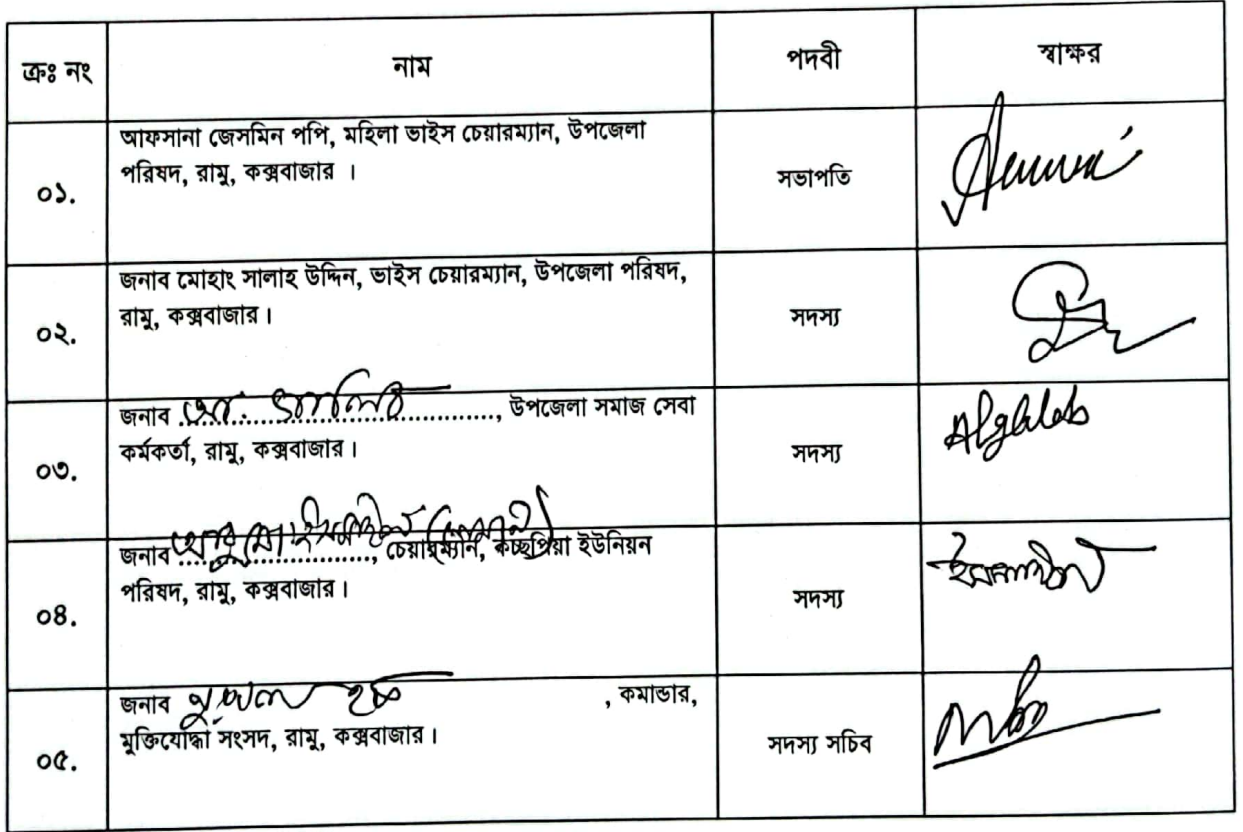 ক্রঃ নং নাম পদবী স্বাক্ষর
আফসানা জেসমিন পপি, মহিলা ভাইস চেয়ারম্যান, উপজেলা
পরিষদ, রামু, কক্সবাজার ।
০১. সভাপতি
জনাব মোহাং সালাহ উদ্দিন, ভাইস চেয়ারম্যান, উপজেলা পরিষদ,
রামু, কক্সবাজার।
০২. সদস্য
জনাব ......................................, উপজেলা সমাজ সেবা
কর্মকর্তা, রামু, কক্সবাজার।
০৩. সদস্য
জনাব ........................, চেয়ারম্যান, কচ্ছপিয়া ইউনিয়ন
পরিষদ, রামু, কক্সবাজার।
০৪. সদস্য
জনাব নুরুল হক , কমান্ডার,
মুক্তিযোদ্ধা সংসদ, রামু, কক্সবাজার।
০৫. সদস্য সচিব